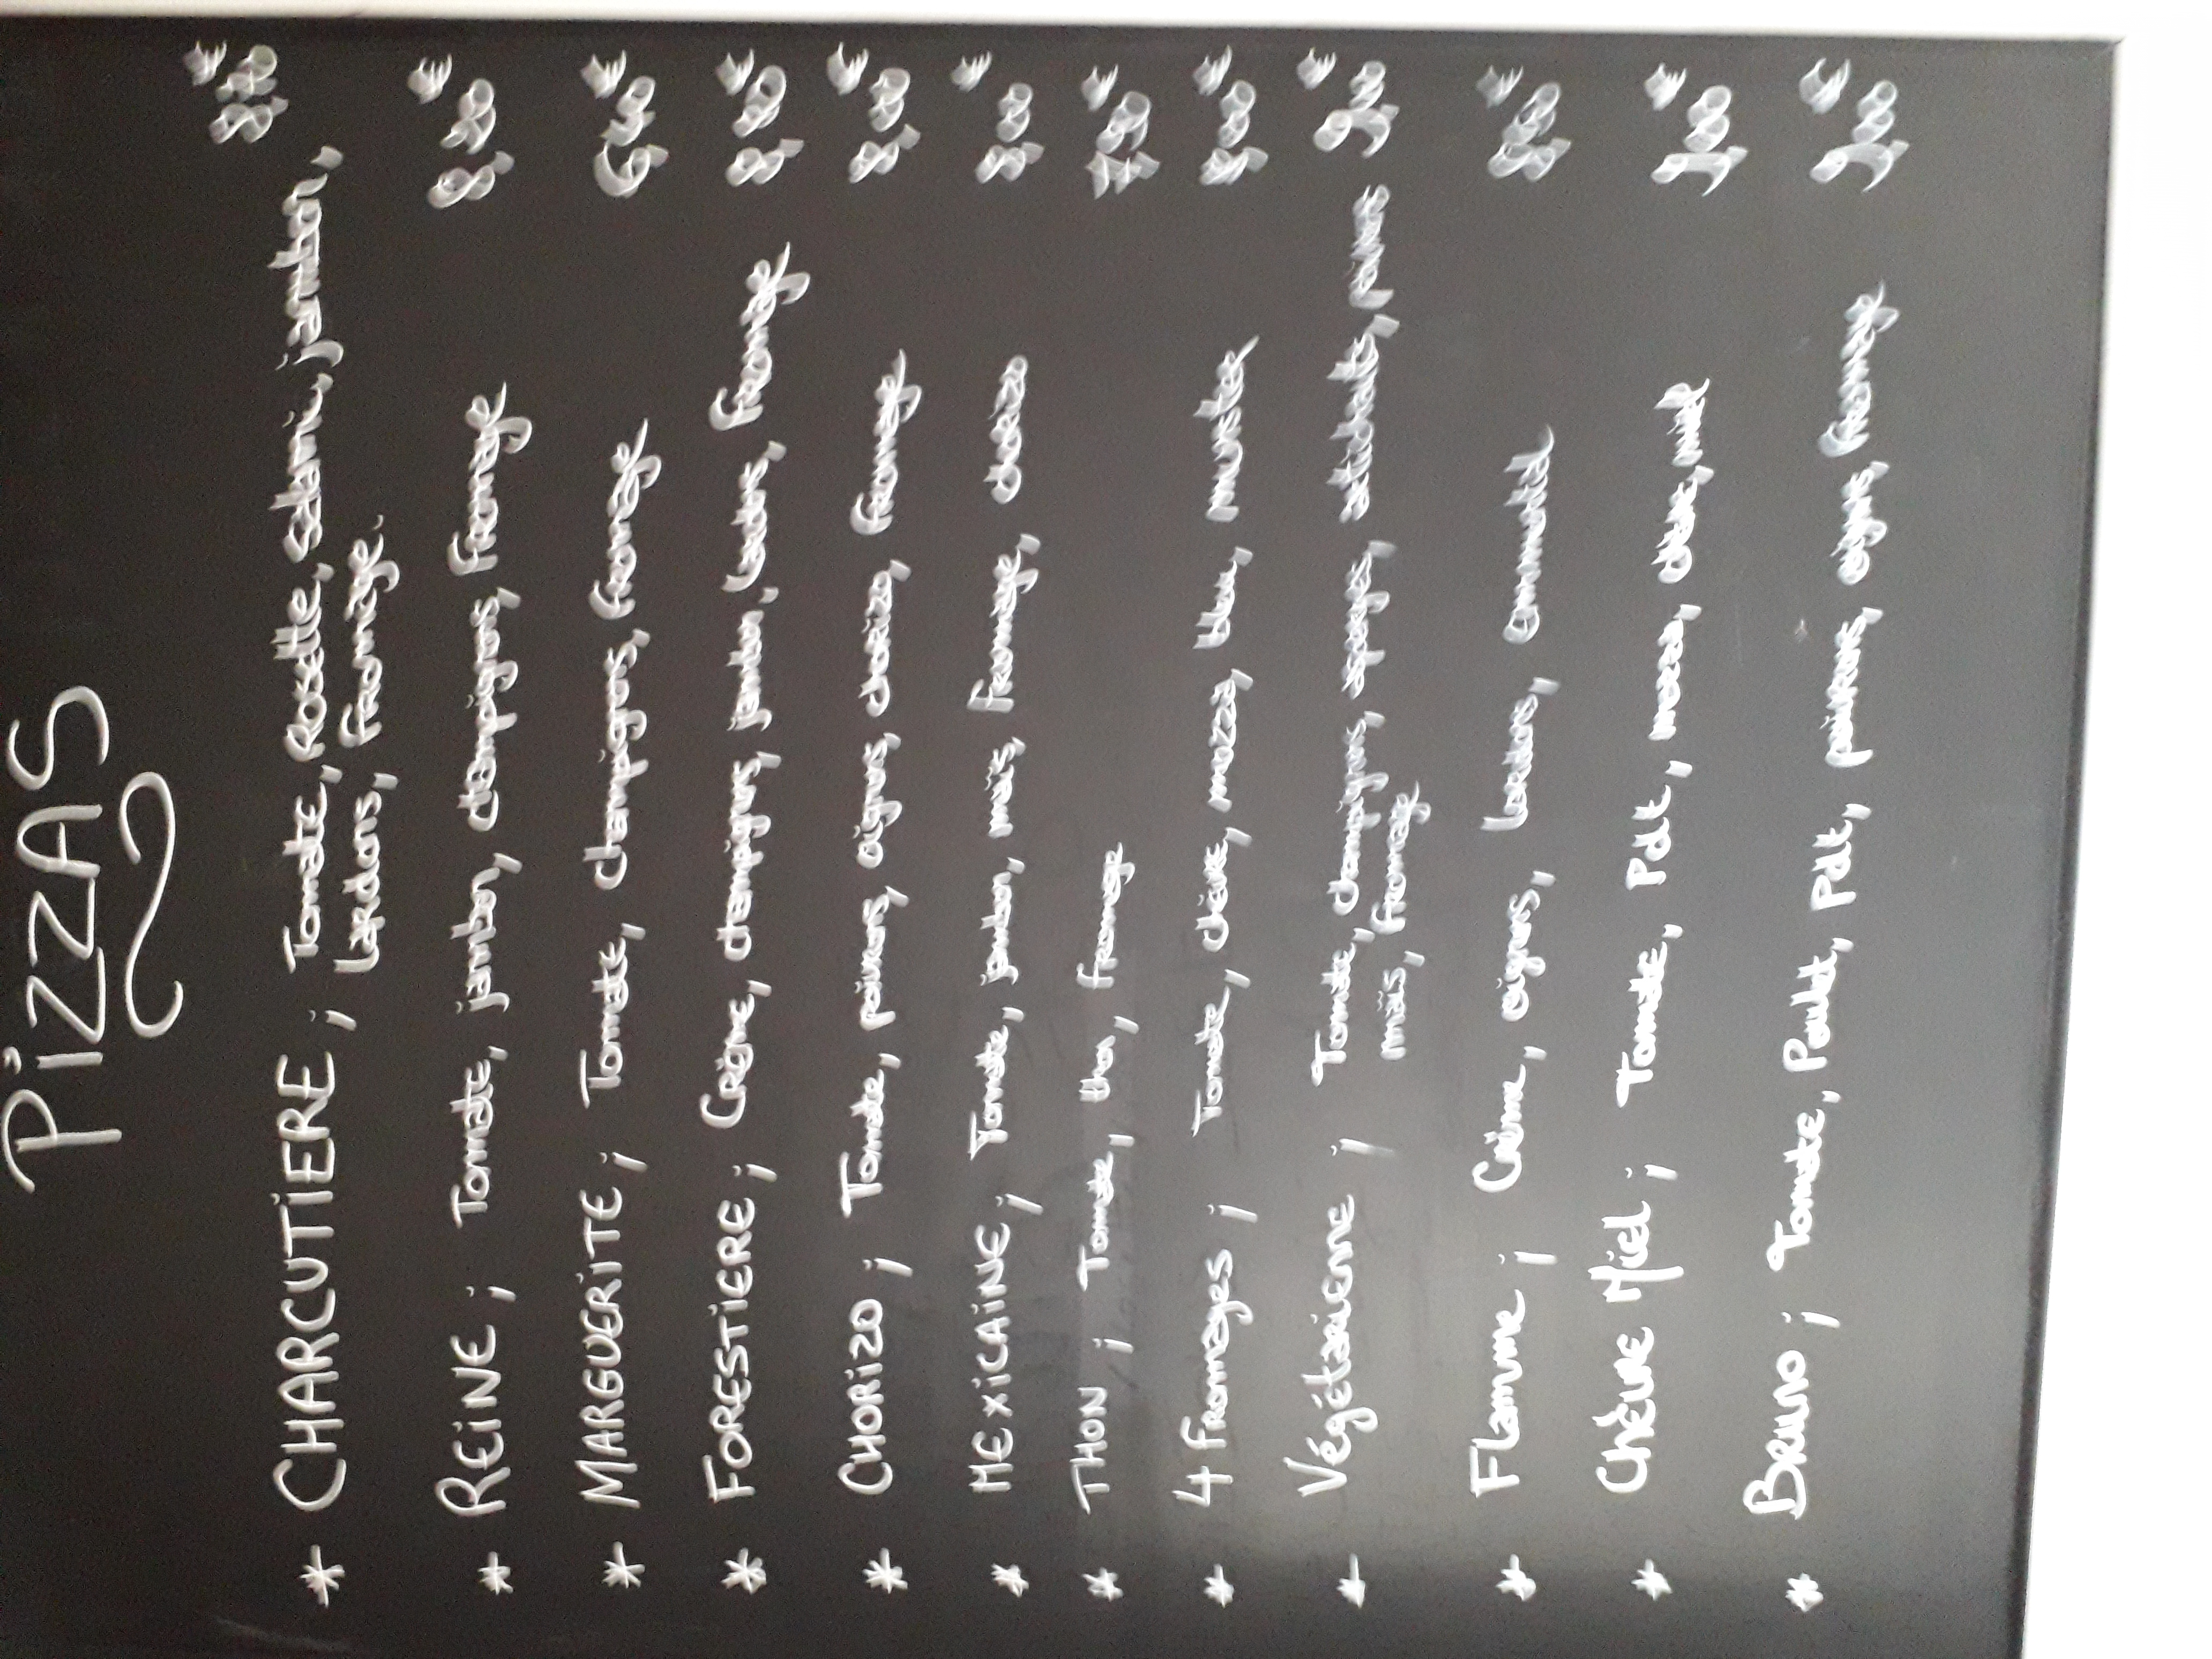 PiZZAS
* CHARCUTIERE ; Tomate, Rosette, salami, jambon,
lardons, fromage.
* REINE ; Tomate, jambon, champignons, fromage
* MARGUERITE ; Tomate, champignons, fromage
* FORESTIERE ; Crème, champignons, jambon, lardons, fromage
* CHORIZO ; Tomate, poivrons, oignons, chorizo, fromage
* MEXICAINE ; Tomate, jambon, maïs, fromage, chorizo
* THON ; Tomate, thon, fromage
* 4 Fromages ; Tomate, chèvre, mozza, bleu, munster
* Végétarienne ; Tomate, champignons, asperges, artichauts, poivrons
maïs, fromage
* Flamme ; Crème, oignons, lardons, emmental
* Chèvre Miel ; Tomate, Pdt, mozza, chèvre, miel
* Bruno ; Tomate, Poulet, Pdt, poivrons, oignons, fromage